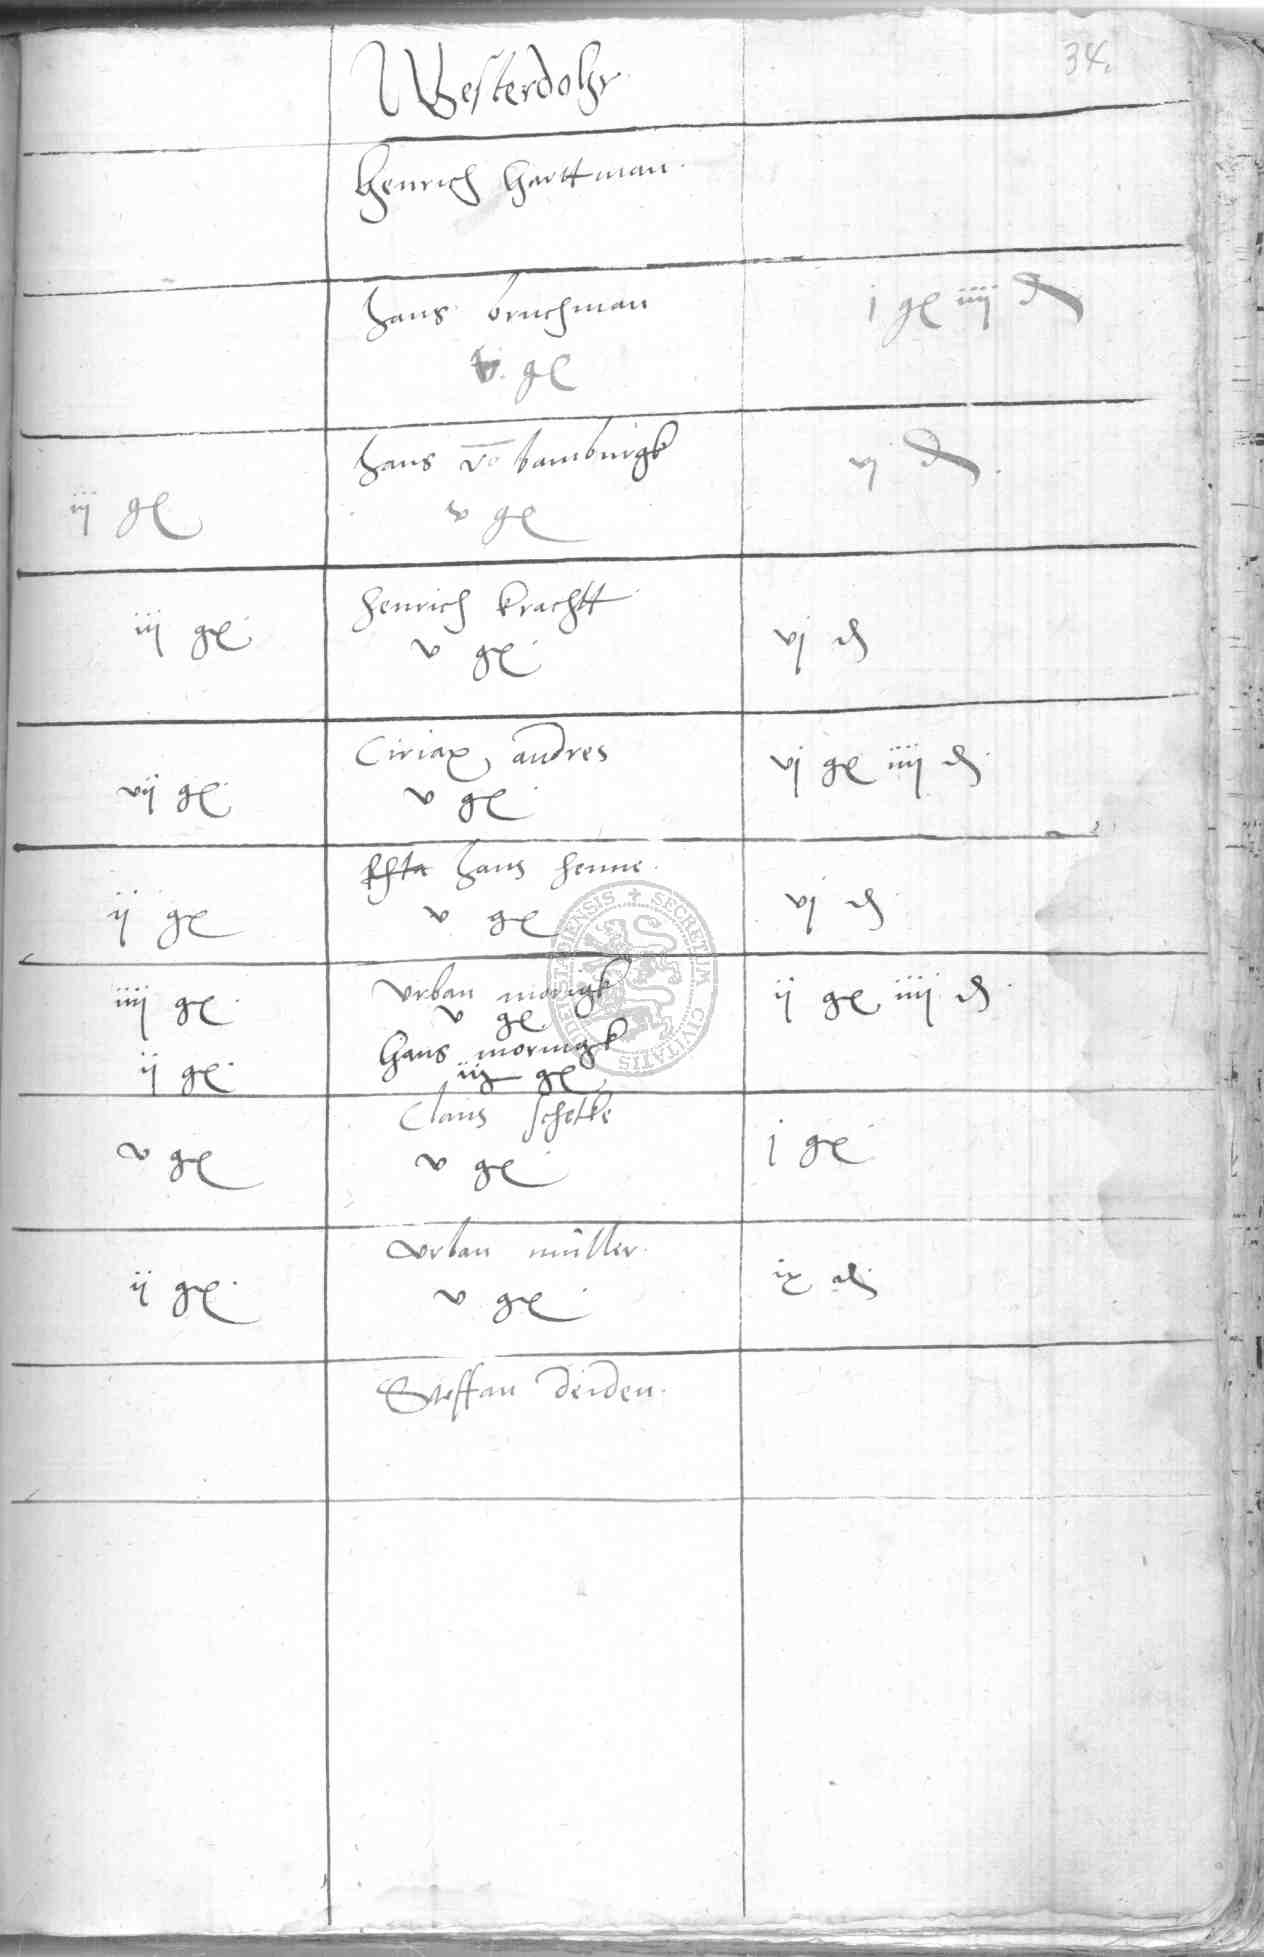 34.
Westerdohr
Henrich Harttman
hans bruchman
j gl iiij d
v. gl
hans vo bamburgk
vj d
iij gl
v gl
henrich krachtt
iij gl
v gl
vj d
Ciriax andres
vij gl
v gl
vj gl iiij d
hans henne
ij gl
v gl
vj d
Urban moringk
iiij gl
v gl
ij gl iiij d
Hans moringk
ij gl
iij gl
Claus schelke
v gl
v gl
j gl
Urban müller
ij gl
v gl
ix d
Steffan deiden
SECRETUM CIVITATIS